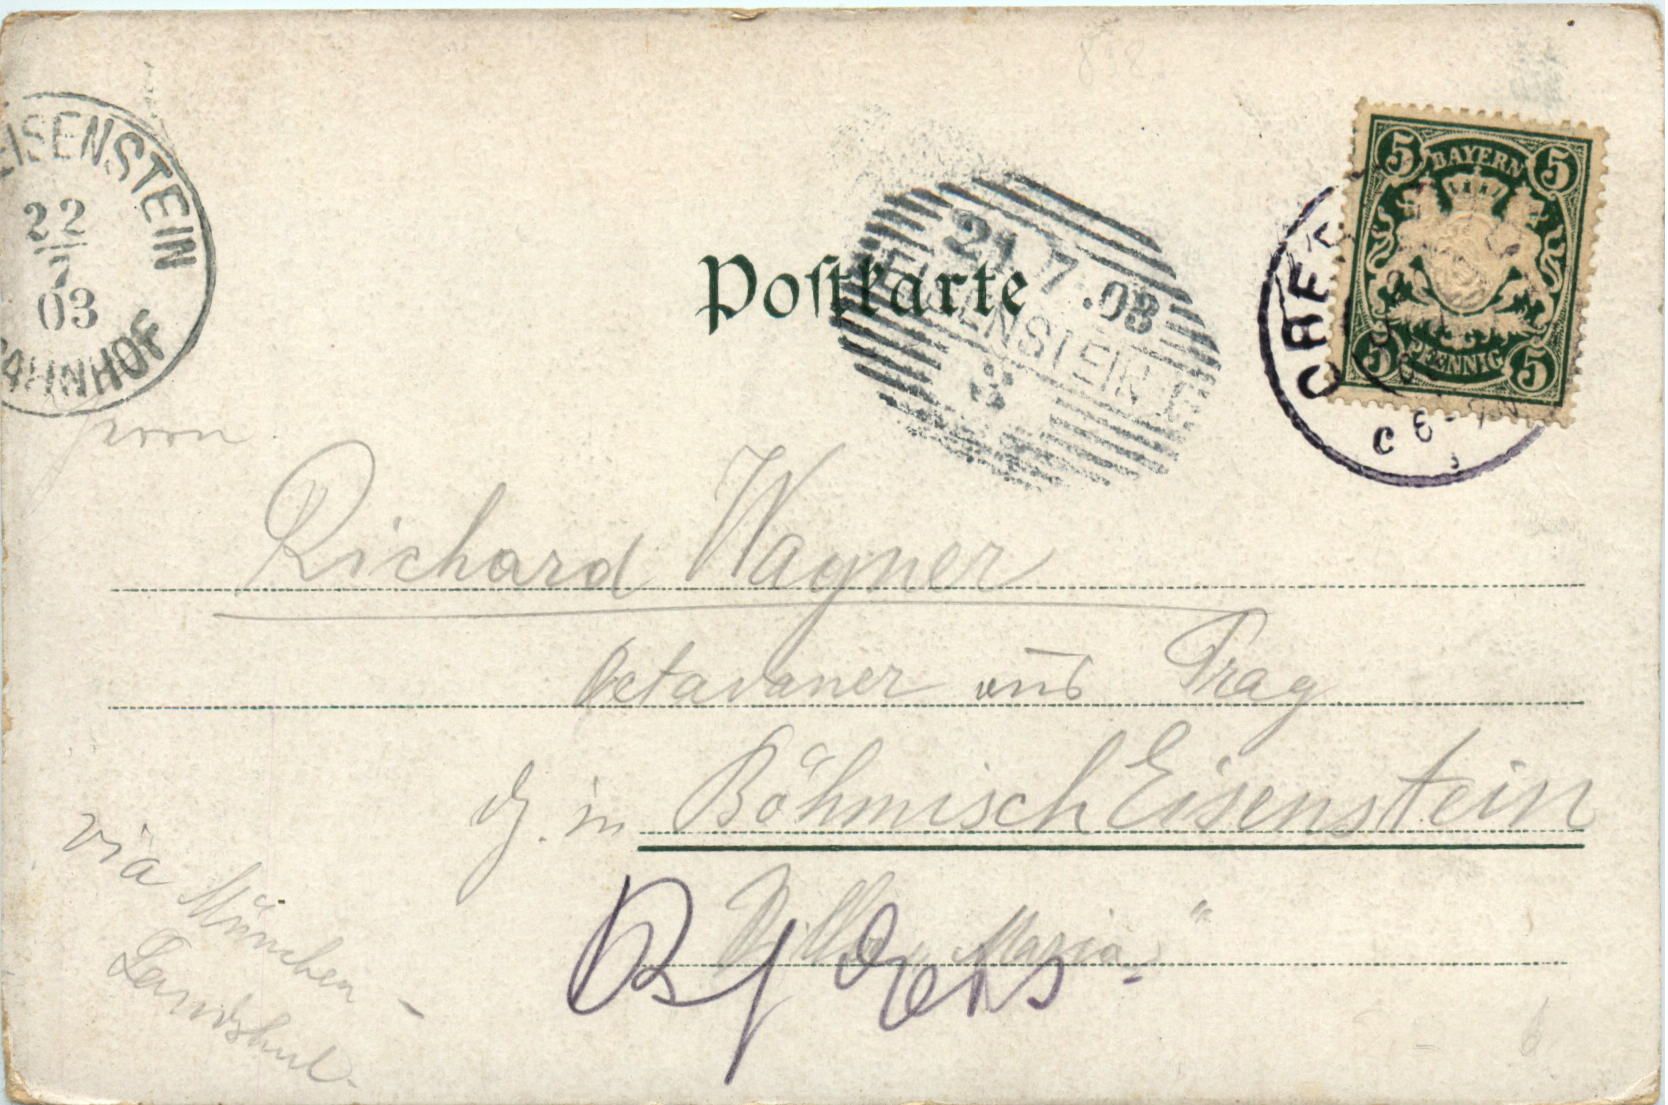 858
EISENSTEIN
22
7
03
BAHNHOF
Postkarte
21.7.03
EISENSTEIN
3
5 BAYERN 5
5 PFENNIG 5
CRE
Herrn
Richard Wagner
Octavaner aus Prag
in Böhmisch Eisenstein
Villa „Maria“
via München -
Landshut.